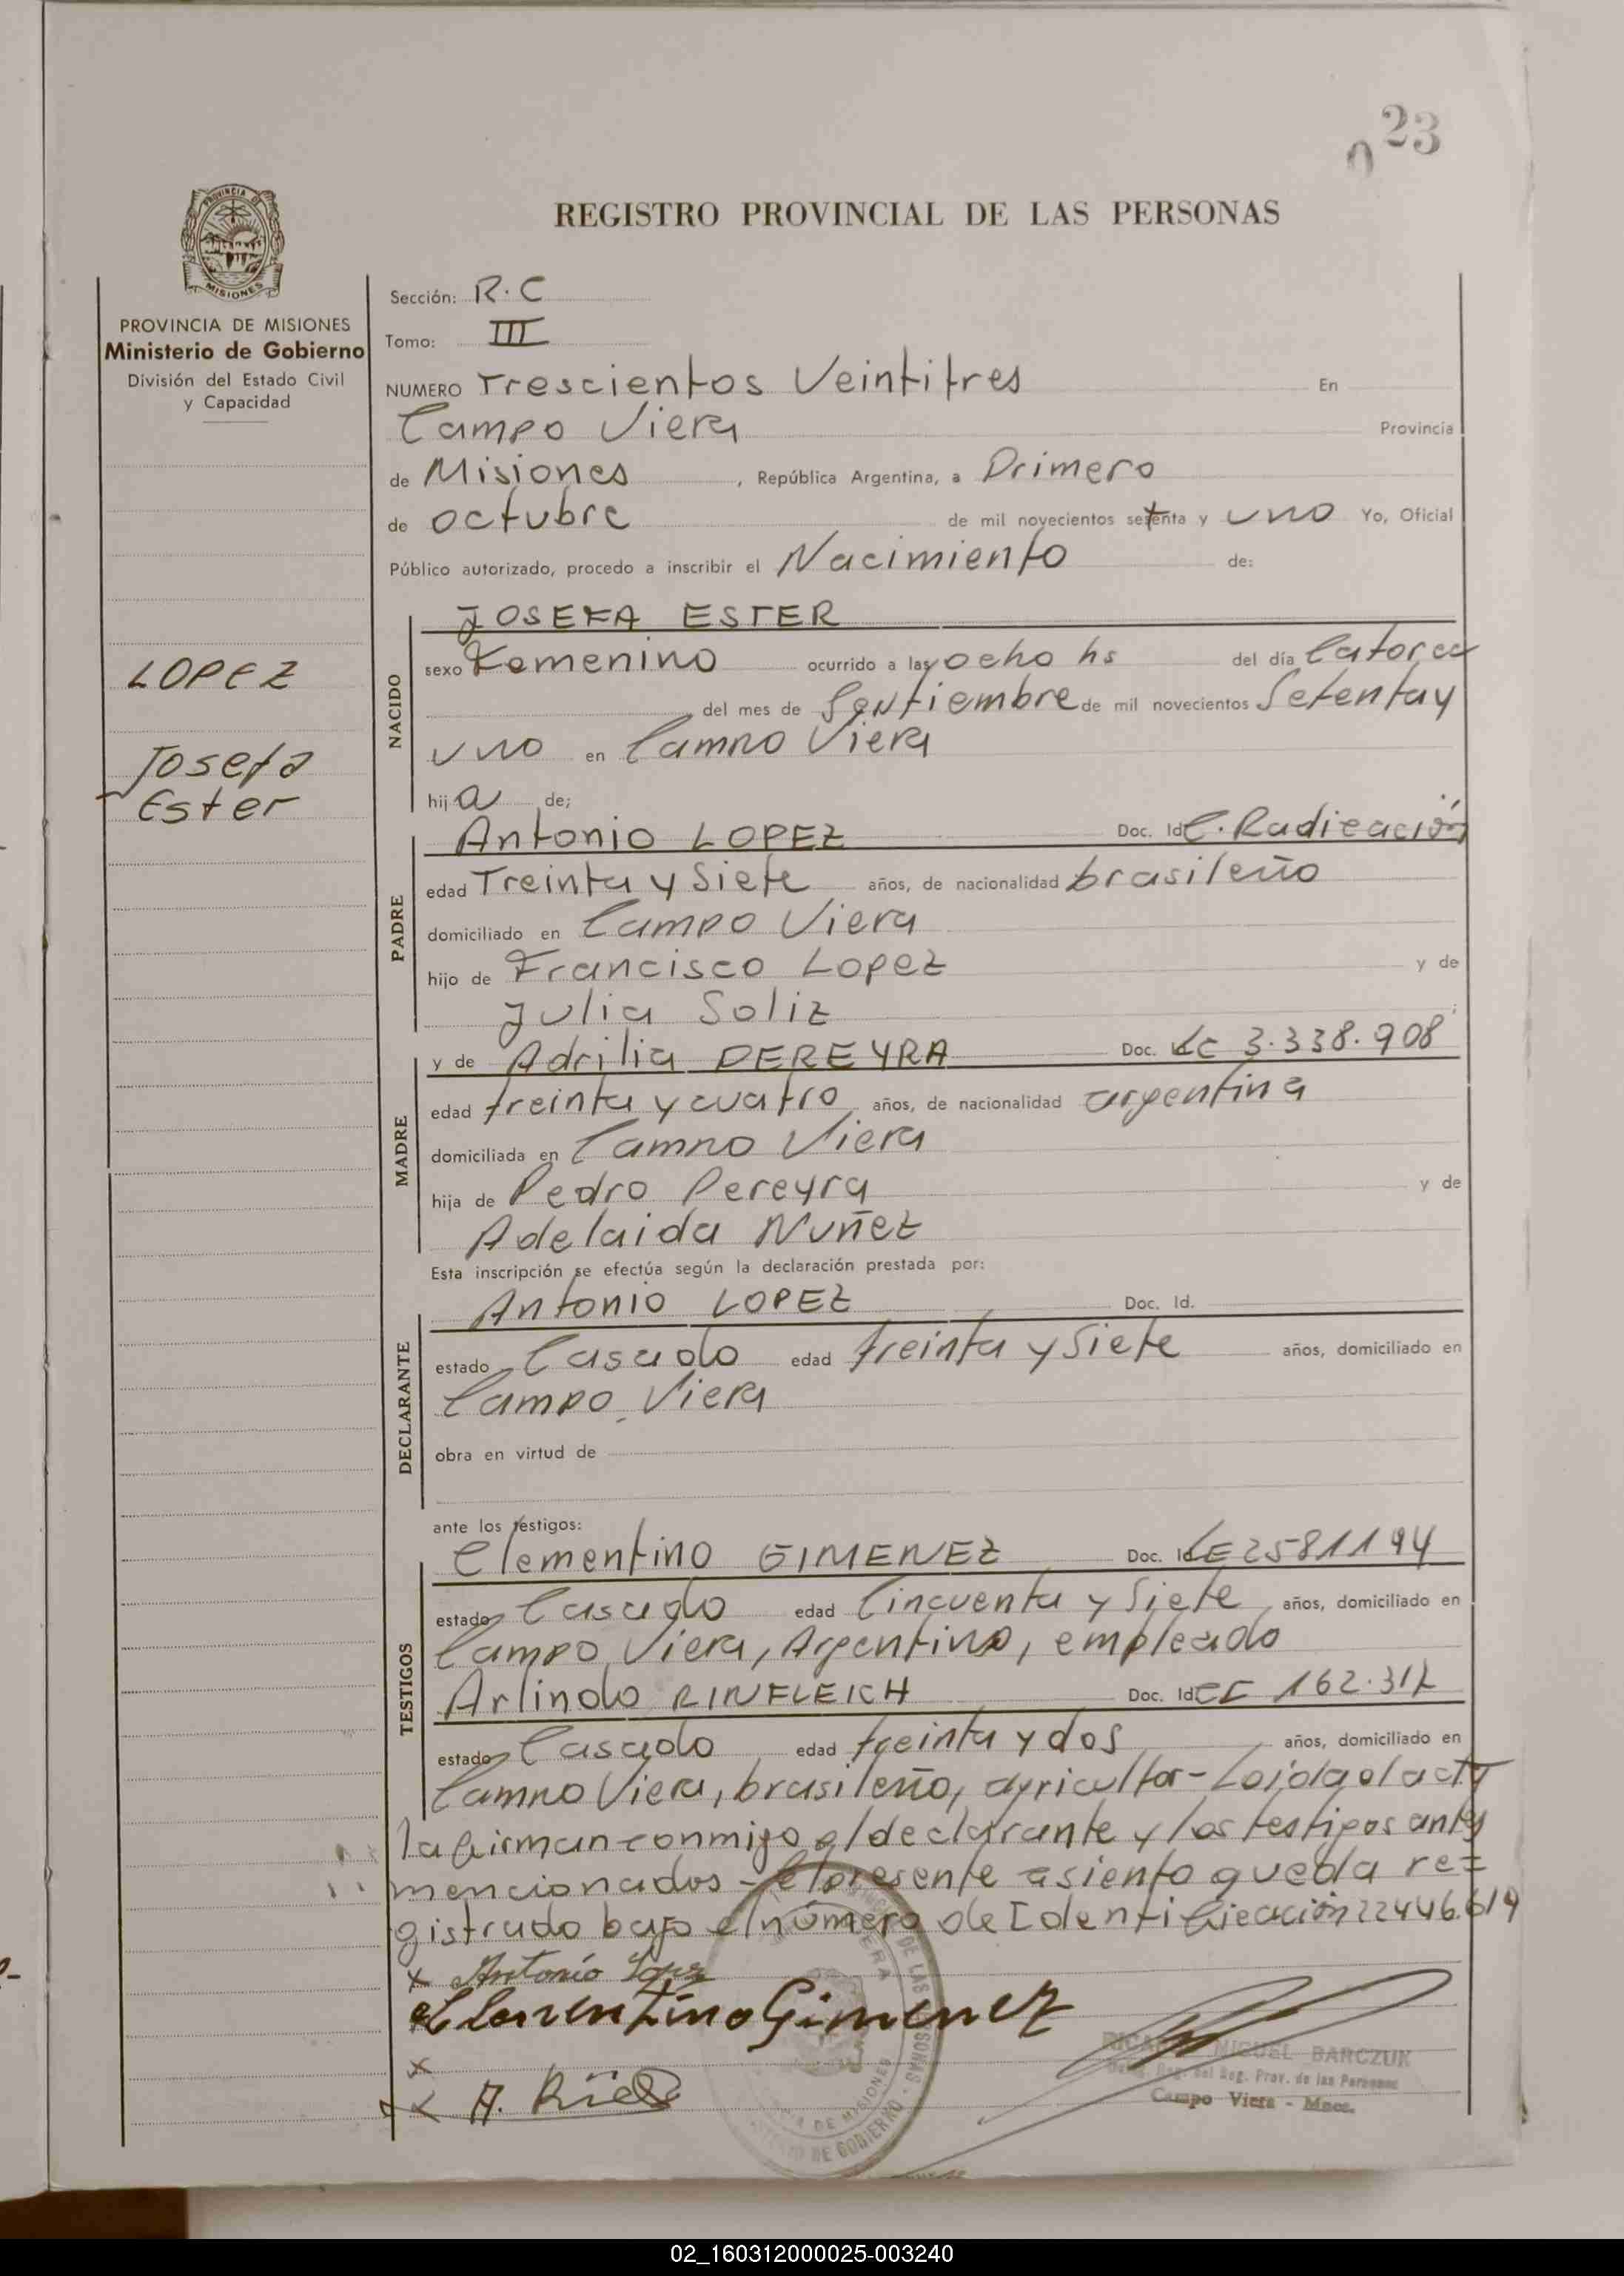 023
REGISTRO PROVINCIAL DE LAS PERSONAS
PROVINCIA DE MISIONES
Ministerio de Gobierno
División del Estado Civil
y Capacidad
LOPEZ
Josefa
Ester
Sección: R.C
Tomo: III
NUMERO Trescientos Veintitres En
Campo Viera Provincia
de Misiones, República Argentina, a Primero
de octubre de mil novecientos setenta y uno Yo, Oficial
Público autorizado, procedo a inscribir el Nacimiento de:
NACIDO
JOSEFA ESTER
sexo Femenino ocurrido a las ocho hs del día Catorce
del mes de Septiembre de mil novecientos Setenta y
uno en Campo Viera
hija de;
PADRE
Antonio LOPEZ Doc. Id C. Radicación
edad Treinta y Siete años, de nacionalidad brasileño
domiciliado en Campo Viera
hijo de Francisco Lopez y de
Julia Soliz
MADRE
y de Adrilia PEREYRA Doc. LC 3.338.908
edad treinta y cuatro años, de nacionalidad argentina
domiciliada en Campo Viera
hija de Pedro Pereyra y de
Adelaida Nuñez
Esta inscripción se efectúa según la declaración prestada por:
DECLARANTE
Antonio LOPEZ Doc. Id.
estado Casado edad treinta y Siete años, domiciliado en
Campo Viera
obra en virtud de
ante los testigos:
TESTIGOS
Clementino GIMENEZ Doc. Id LE 2581194
estado Casado edad Cincuenta y Siete años, domiciliado en
Campo Viera, Argentino, empleado
Arlindo RINFLEICH Doc. Id 162.317
estado Casado edad treinta y dos años, domiciliado en
Campo Viera, brasileño, agricultor - Leida el acta
la firman conmigo el declarante y los testigos antes
mencionados - El presente asiento queda re=
gistrado bajo el número de Identificación 22446.614
x Antonio Lopez
Clementino Gimenez
x
x A. Rie
MIGUEL BARCZUK
del Reg. Prov. de las Personas
Campo Viera - Mnes.
02_160312000025-003240